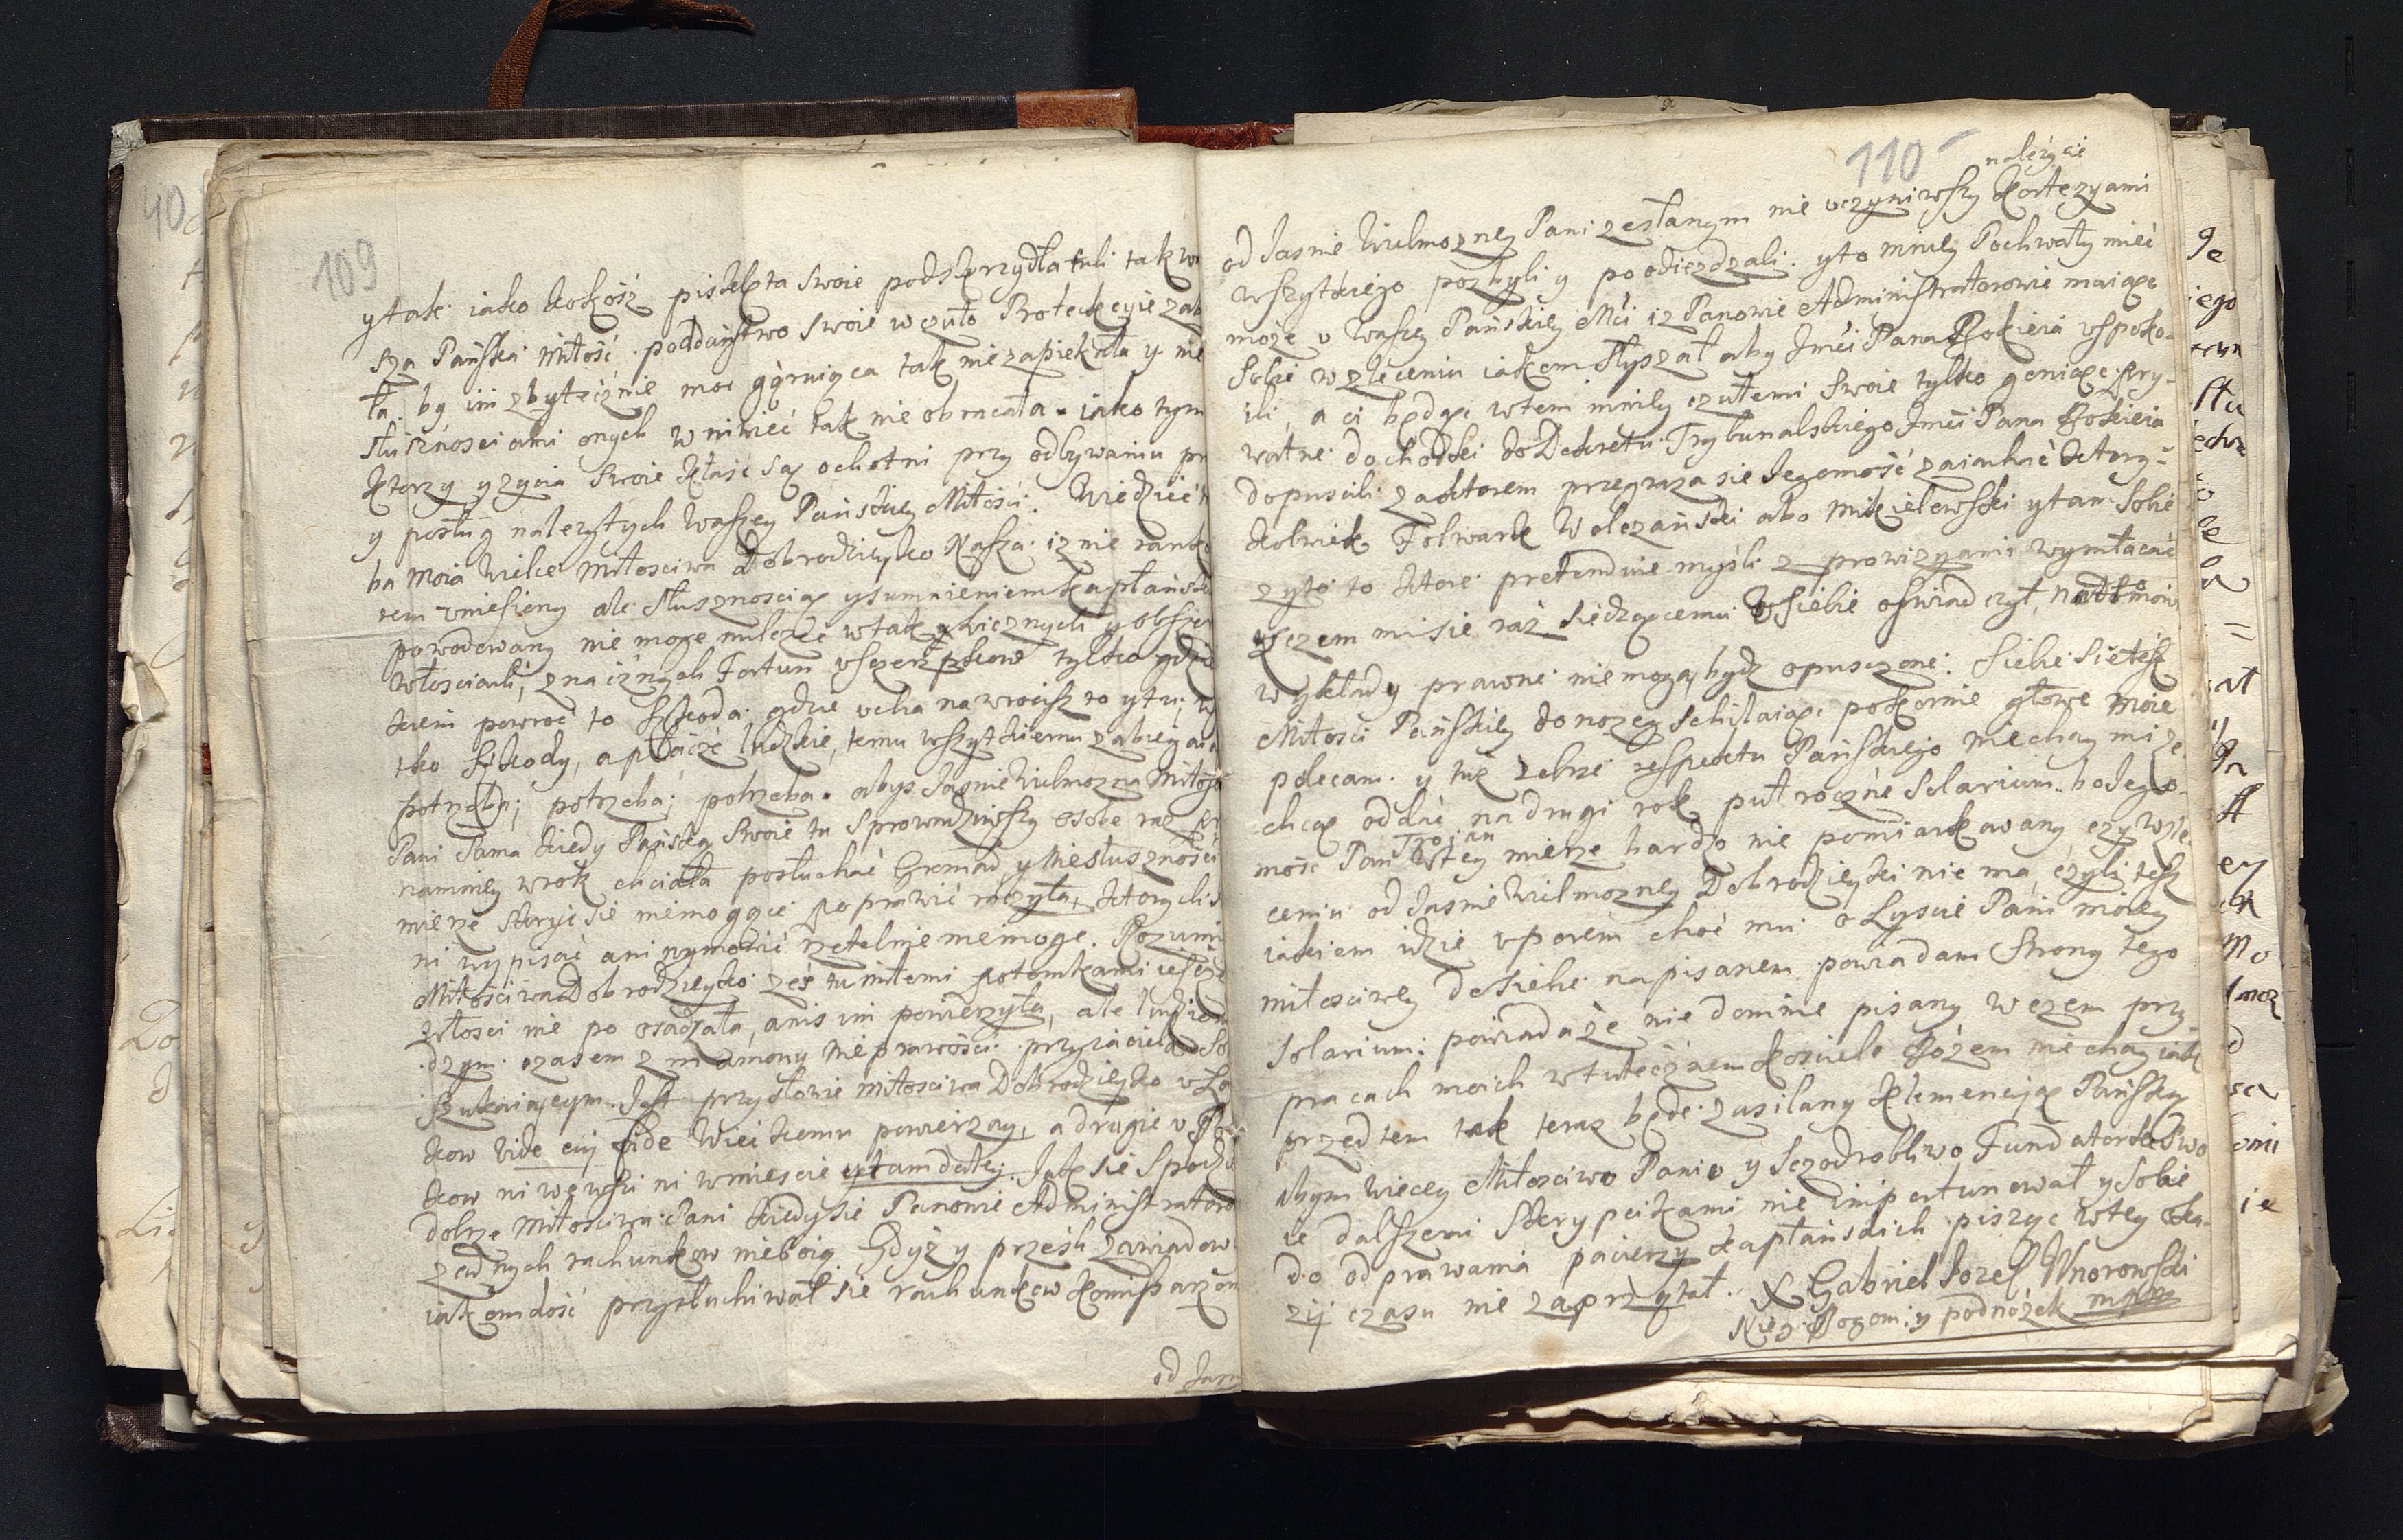 109
y tak iako kokosz pisklęta swoie pod skrzydła tuli tak wa
sza Pańska Miłość poddaństwo swoie w czuło Protekcyie zab
ła by im zbytecznie moc gornigca tak nie zapiekała y nie
słusznosciami onych w niwiec tak nie obracała iako tym
ktorzy y zycia swoie kłasc są ochotni przy odbywaniu pr
y posług nalezytych Waszey Pańskiey Miłości. Wiedzieć
ba moia Wielce Miłosciwa Dobrodzieyko Nasza iz nie rank
rem uniesiony ale słusznoscią y sumnieniem kapłańsk
powodowany nie moge milczec w tak slicznych y obszer
włosciach, znacznych Fortun uszczerpkow tylko gdzie
kiem powroć to szkoda gdzie ucha nawrocisz to y tu; ty
ko szkody, a płacze ludzkie, temu wszytkiemu zabiegai
potrzeba; potrzeba; potrzeba. abys Jasnie Wielmozna Miłosc
Pani sama kiedy Pańską swoie tu sprowadziwszy osobe raz pr
namniey w rok chciała posłuchać Gromad y niesłuszności
mierze skryc sie niemogące poprawić raczyła, ktorych
ni wypisać ani wymowić rzetelnie niemoge. Rozumi
Miłościwa Dobrodzieyko zes tu miłemi potomkami iesz
włosci nie po osadzała, anis im powierzyła, ale ludziom
dzym czasem z mamony nieprawości przyiacieło so
szukaiącym. Jest przysłowie Miłosciwa Dobrodzieyko u Ła
kow vide cuj fide Wiei komu powierzay, a drugie u Po
kow ni we wsi ni w miescie y tam daley. Jak sie spodzie
dobrze Miłosciwa Pani kiedy sie Panowie Administratoro
zadnych rachunkow nieboią. Gdyż y przesli zawiadow
iakom dość przysłuchiwał sie rachunkow komissarzom
od Jasn
110
należycie
od Jasnie Wielmozney Pani zesłanym nie uczyniwszy kortezyami
wszytkiego pozbyli y poodiezdzali. y to mniey Pochwały mieć
może u Waszey Pańskiey Mci iz Panowie Administratorowie maiące
sobie w zleceniu iakem słyszał aby Jmci Pana Rokicia uspoko-
ili, a ci będąc w tem mniey czułemi swoie tylko goniąc pry-
watne dochodki do Dekretu Trybunalskiego Jmci Pana Rokicia
dopuscili z aktorem przegraza sie Jegomość zaiachać ktory-
kolwiek Folwark Wolczański abo Mikielewski y tam sobie
zyto to ktore pretenduie myśli z prowizyami wymłacać
w czem mi sie raz siedzącemu u siebie oswiadczył, nadto mow
wykłady prawne niemogą bydz opusczone. Siebie sie tesz
Miłosci Pańskiey do nozeg schylaiąc pokornie głowe moie
polecam y tuż zebrze respektu Pańskiego niechay mi ze-
chcą oddać na drugi rok put roczne Solarium bo Jego-
mość Pan Trojan w tey mierze bardzo nie pomiarkowany czy w zle-
ceniu od Jasnie Wielmozney Dobrodzieyki nie ma czyli tesz
iakiem idzie uporem choć mu o Lyscie Pani moiey
miłosciwey do siebie napisanem powiadam strony tego
solarium: powiada że nie do mnie pisany w czem przy
pracach moich w tuteczznem kosciele Bożem niechay iak
przed tem tak teraz będe zasilany klemencyą Pańską
abym wiecey Miłosciwo Panio y sczodrobliwo Fundatorko two
ie dalszemi skrypcikami nie importunował y sobie
do odprawania pacierzy kapłańskich pisząc w tey oka-
zij czasu nie zaprzątał. X Gabriel Jozef Wnorowski
Niez. Bogom: y podnóżek mppa